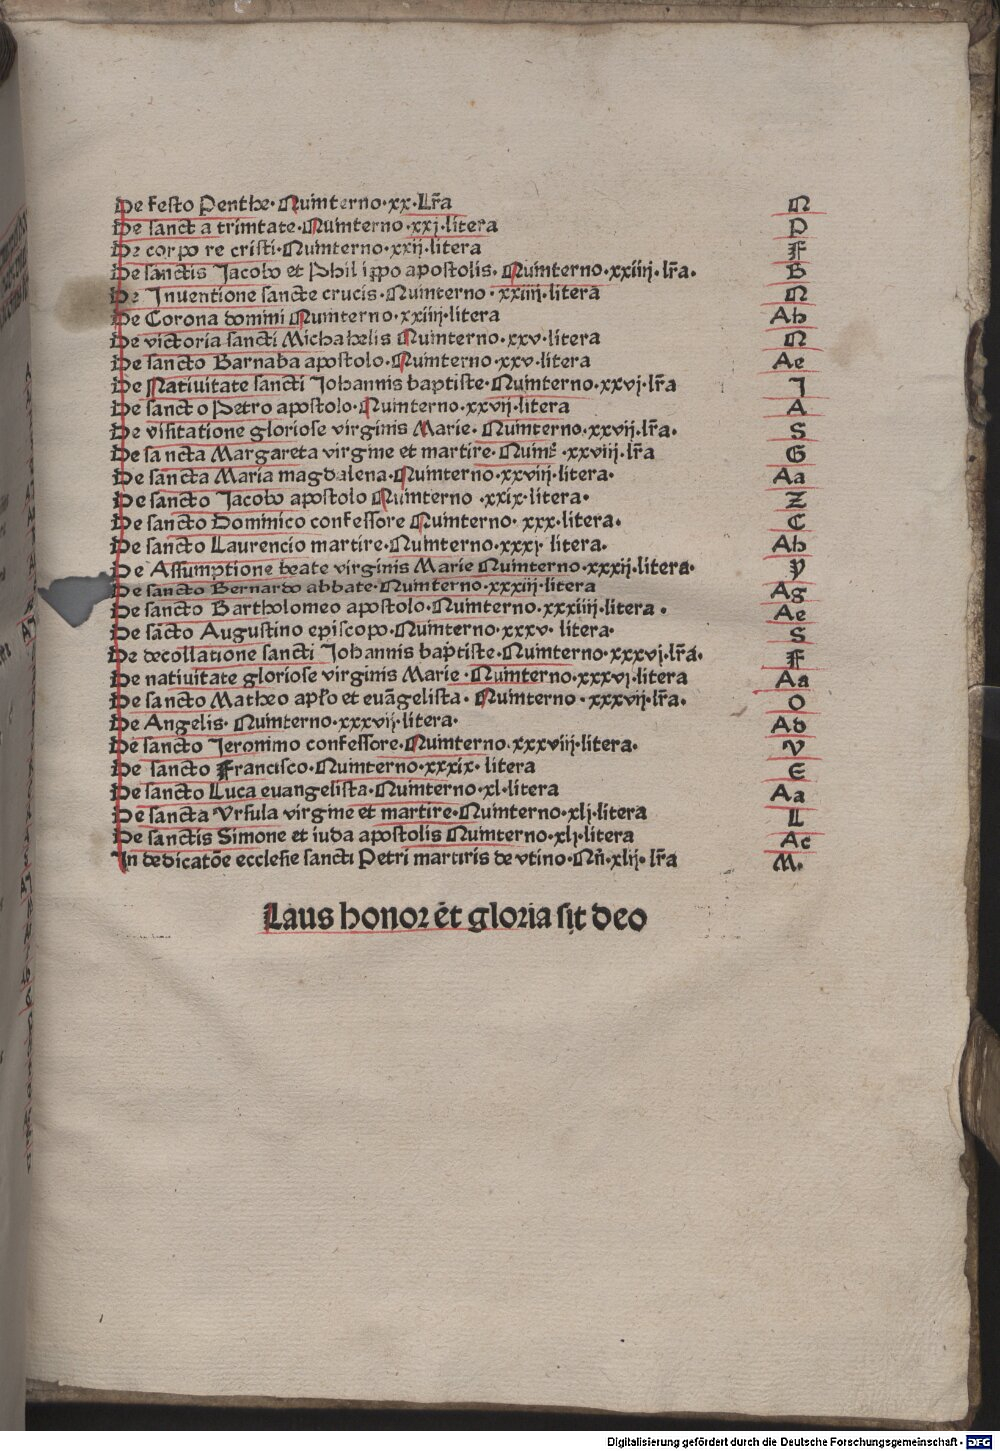 De festo Penthe· Quinterno·xx·Lr̄a N
De sanct a trinitate·Quinterno·xxj·litera P
De corpo re cristi·Quinterno·xxij·litera F
De sanctis Jacobo et Philippo apostolis. Quinterno·xxiiij·lr̄a. B
De Inuentione sancte crucis·Quinterno·xxiiij·litera N
De Corona domini Quinterno·xxiiij·litera Ab
De victoria sancti Michahelis Quinterno·xxv·litera N
De sancto Barnaba apostolo·Quinterno·xxv·litera Ae
De Natiuitate sancti Johannis baptiste·Quinterno·xxvj·lr̄a I
De sanct o Petro apostolo·Quinterno·xxvij·litera A
De visitatione gloriose virginis Marie· Quinterno·xxvij·lr̄a. S
De sa ncta Margareta virgine et martire· Quint̄ ·xxviij·lr̄a G
De sancta Maria magdalena·Quinterno·xxviij·litera· Aa
De sancto Jacobo apostolo Quinterno ·xxix·litera· Z
De sancto Dominico confessore Quinterno· xxx·litera. C
De sancto Laurencio martire·Quinterno·xxxj· litera. Ab
De Assumptione beate virginis Marie Quinterno·xxxij·litera· Y
De sancto Bernardo abbate·Quinterno·xxxiij·litera Ag
De sancto Bartholomeo apostolo·Quinterno·xxxiiij·litera · Ae
De sācto Augustino episcopo·Quinterno·xxxv· litera· S
De decollatione sancti Johannis bap̄tiste·Quinterno·xxxvj·lr̄a. F
De natiuitate gloriose virginis Marie ·Quinterno·xxxvj·litera Aa
De sancto Matheo apl̄o et euāgelista· Quinterno ·xxxvij·lr̄a. O
De Angelis· Quinterno·xxxvij·litera· Ad
De sancto Jeronimo confessore·Quinterno·xxxviij·litera· V
De sancto Francisco·Quinterno·xxxix· litera E
De sancto Luca euangelista·Quinterno·xl·litera Aa
De sancta Vrsula virgine et martire·Quinterno·xlj·litera L
De sanctis Simone et iuda apostolis Quinterno·xlj·litera Ac
In dedicatōe ecclesie sancti Petri martiris de vtino·Qn̄·xlij· lr̄a M.
Laus honor et gloria sit deo
Digitalisierung gefördert durch die Deutsche Forschungsgemeinschaft · DFG